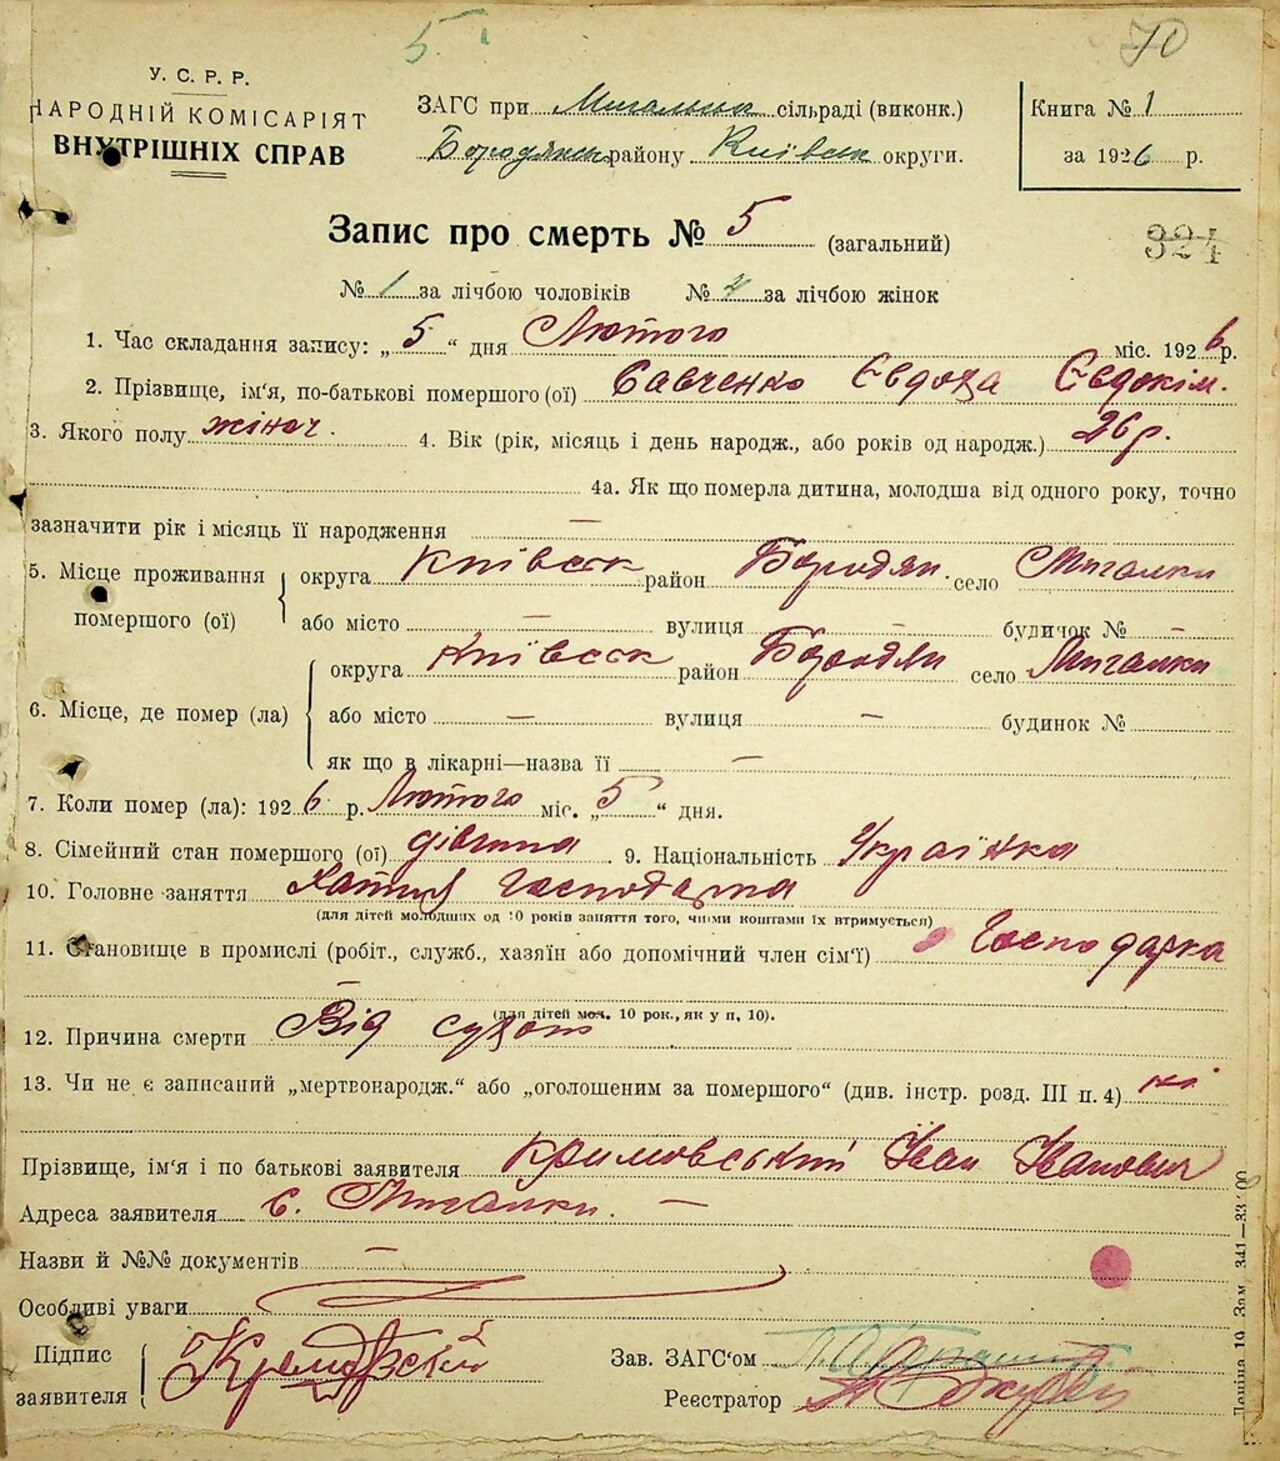 5.
70
У. С. Р. Р.
НАРОДНІЙ КОМІСАРІЯТ
ВНУТРІШНІХ СПРАВ
ЗАГС при Мигальськ сільраді (виконк.)
Бородянськ району Київськ округи.
Книга № 1
за 1926 р.
Запис про смерть № 5 (загальний)
324
№ 1 за лічбою чоловіків № 4 за лічбою жінок
1. Час складання запису: „5“ дня Лютого міс. 1926 р.
2. Прізвище, ім‘я, по-батькові помершого (ої) Савченко Євдоха Євдокім.
3. Якого полу жіноч. 4. Вік (рік, місяць і день народж., або років од народж.) 26 р.
4а. Як що померла дитина, молодша від одного року, точно
зазначити рік і місяць її народження —
5. Місце проживання помершого (ої) округа Київськ район Бородян. село Мигалки
або місто — вулиця — будичок № —
6. Місце, де помер (ла) округа Київськ район Бородян село Мигалки
або місто — вулиця — будинок №
як що в лікарні—назва її —
7. Коли помер (ла): 1926 р. Лютого міс. „5“ дня.
8. Сімейний стан помершого (ої) дівчина 9. Національність Українка
10. Головне заняття Хатня Господарка
(для дітей молодших од 10 років заняття того, чиїми коштами їх втримується)
11. Становище в промислі (робіт., служб., хазяїн або допомічний член сім‘ї) Господарка
(для дітей мол. 10 рок., як у п, 10).
12. Причина смерти Від сухот
13. Чи не є записаний „мертвонародж.“ або „оголошеним за помершого“ (див. інстр. розд. III п. 4) ні
Прізвище, ім‘я і по батькові заявителя Кримовський Іван Іванович
Адреса заявителя с. Мигалки. —
Назви й №№ документів —
Особливі уваги
Підпис заявителя
Зав. ЗАГС‘ом
Реєстратор
Зам 341—33100